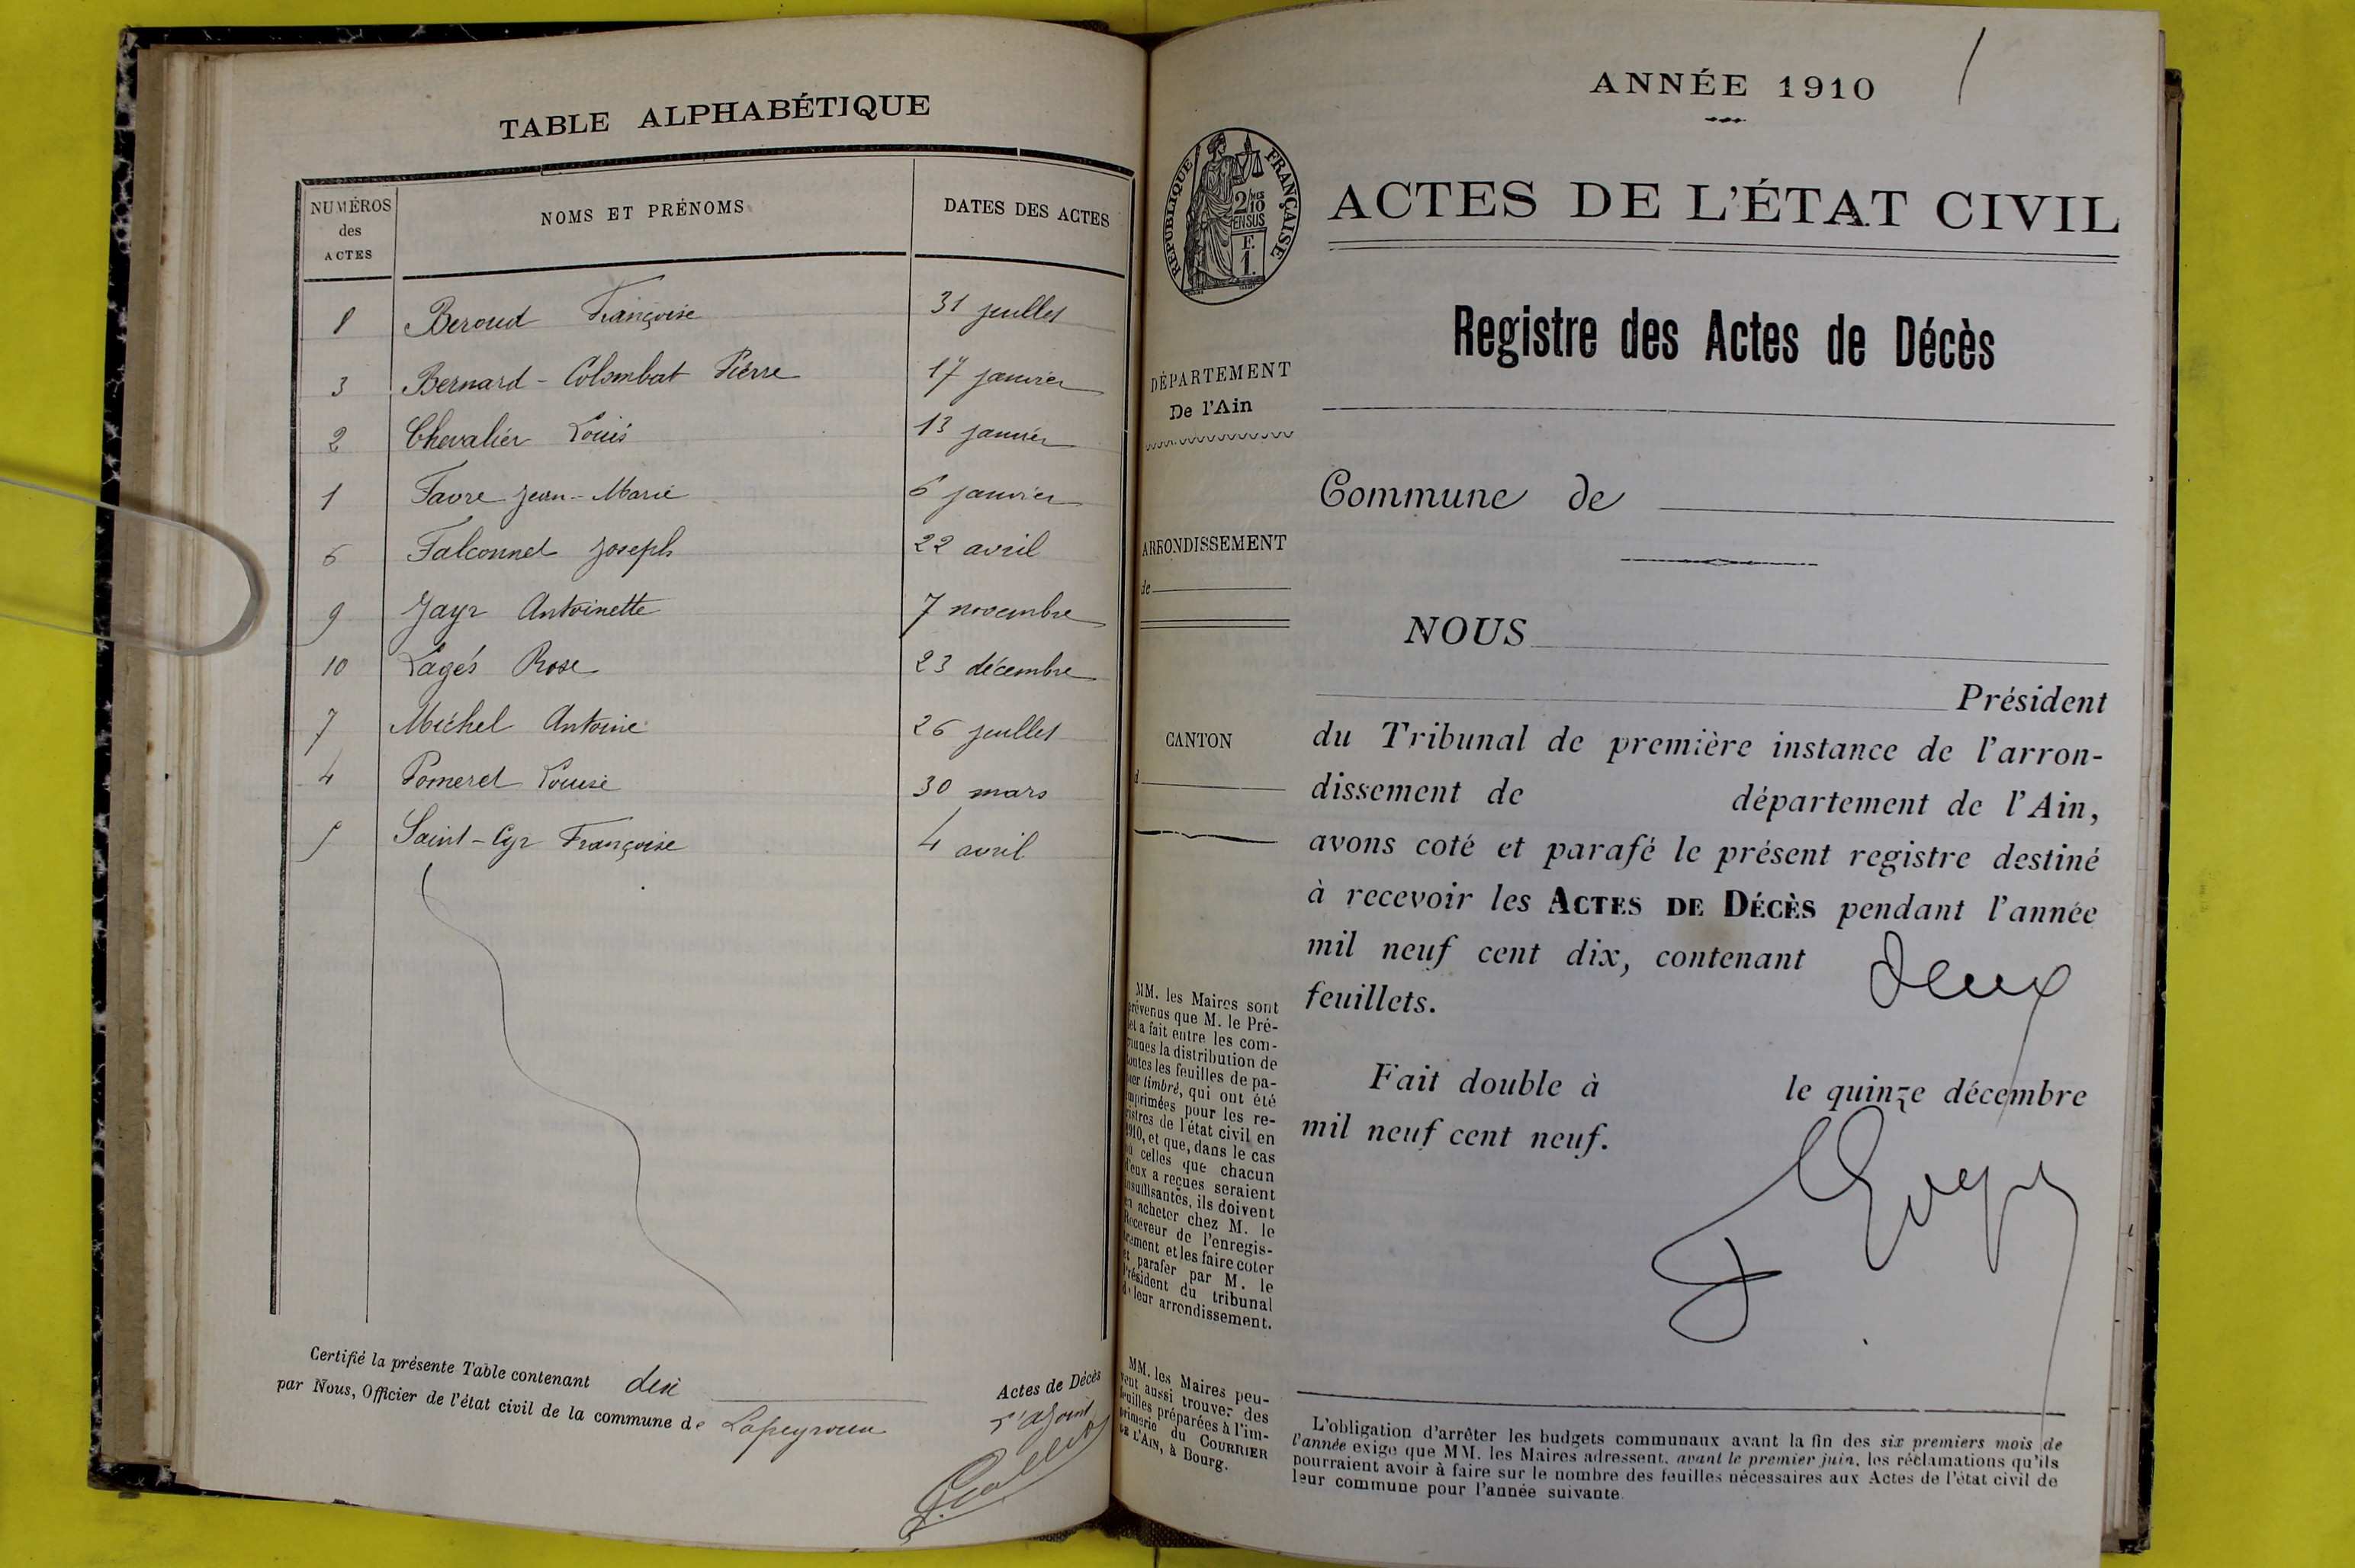 TABLE ALPHABÉTIQUE
NUMÉROS des ACTES NOMS ET PRÉNOMS DATES DES ACTES
8 Beroud Françoise 31 juillet
3 Bernard-Colombat Pierre 17 janvier
2 Chevalier Louis 13 janvier
1 Favre Jean-Marie 6 janvier
6 Falconnet Joseph 22 avril
9 Jayr Antoinette 7 novembre
10 Lagés Rose 23 décembre
7 Michel Antoine 26 juillet
4 Pomeret Louise 30 mars
5 Saint-Cyr Françoise 4 avril
Certifié la présente Table contenant dix Actes de Décès
par Nous, Officier de l'état civil de la commune de Lapeyrouse
L'adjoint
ANNÉE 1910
RÉPUBLIQUE FRANÇAISE
2/10 EN SUS
F.
1.
ACTES DE L'ÉTAT CIVIL
Registre des Actes de Décès
DÉPARTEMENT
De l'Ain
Commune de
ARRONDISSEMENT
de
NOUS
Président
CANTON
d
du Tribunal de première instance de l'arron-
dissement de département de l'Ain,
avons coté et parafé le présent registre destiné
à recevoir les ACTES DE DÉCÈS pendant l'année
mil neuf cent dix, contenant deux
feuillets.
Fait double à le quinze décembre
mil neuf cent neuf.
MM. les Maires sont
prévenus que M. le Pré-
fet a fait entre les com-
munes la distribution de
toutes les feuilles de pa-
pier timbré, qui ont été
imprimées pour les re-
gistres de l'état civil en
1910, et que, dans le cas
où celles que chacun
d'eux a reçues seraient
insuffisantes, ils doivent
en acheter chez M. le
Receveur de l'enregis-
trement et les faire coter
et parafer par M. le
Président du tribunal
de leur arrondissement.
MM. les Maires peu-
vent aussi trouver des
feuilles préparées à l'im-
primerie du COURRIER
DE L'AIN, à Bourg.
L'obligation d'arrêter les budgets communaux avant la fin des six premiers mois de
l'année exige que MM. les Maires adressent, avant le premier juin, les réclamations qu'ils
pourraient avoir à faire sur le nombre des feuilles nécessaires aux Actes de l'état civil de
leur commune pour l'année suivante.